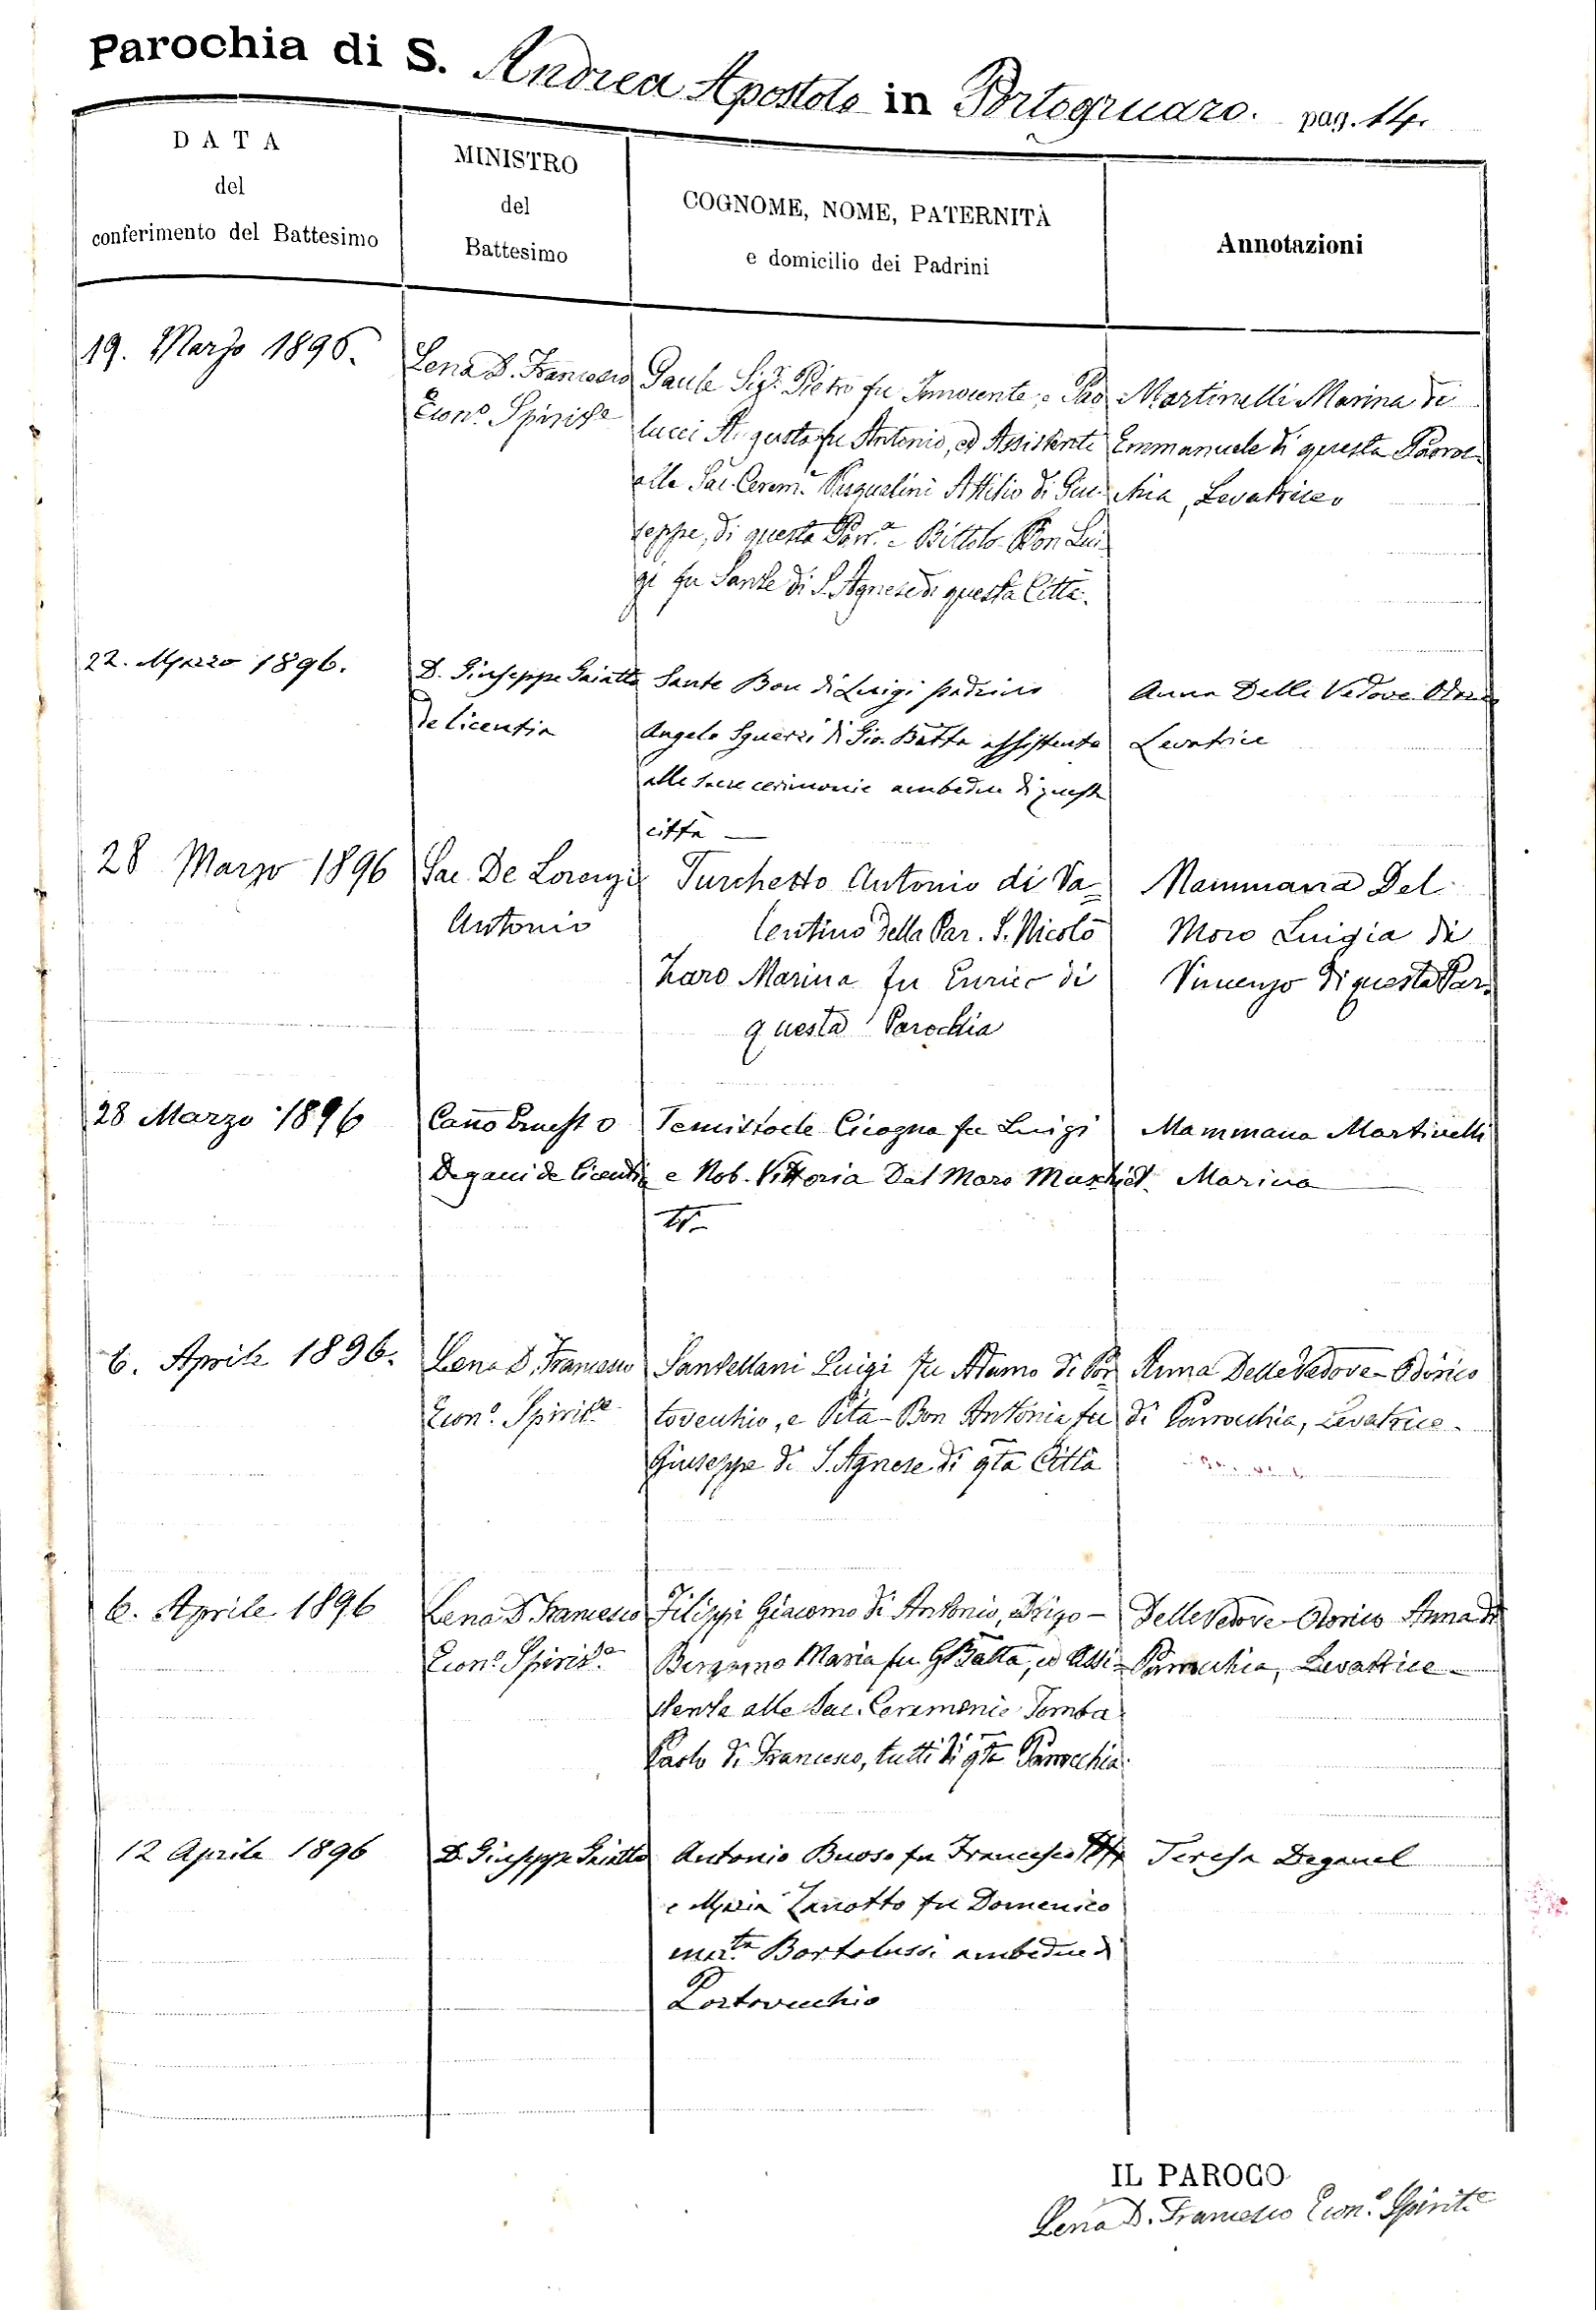 Parochia di S. Andrea Apostolo in Portogruaro. pag. 14.
DATA
del
conferimento del Battesimo
MINISTRO
del
Battesimo
COGNOME, NOME, PATERNITÀ
e domicilio dei Padrini
Annotazioni
19. Marzo 1896.
Lena D. Francesco
Econ.º Spirit.e
Sig.r Pietro fu Innocente, e Pao
lucci Augusta fu Antonio, ed Assistente
alle Sac. Cerem.e Pasqualini Attilio di Giu-
seppe, di questa Parr.a - Bittolo-Bon Lui
gi fu Sante di S. Agnese di questa Città.
Martinelli Marina di
Emmanuele di questa Parroc-
chia, Levatrice
22. Marzo 1896.
D. Giuseppe Gaiatto
de licentia
Sante Bon di Luigi padrino
Angelo di Gio. Batta assistente
alle sacre cerimonie ambedue di questa
città —
Anna Delle Vedove
Levatrice
28 Marzo 1896
Sac. De Lorenzi
Antonio
Turchetto Antonio di Va=
lentino della Par. S. Nicolò
Zaro Marina fu Enrico di
questa Parochia
Mammana Del
Moro Luigia di
Vincenzo di questa Par.
28 Marzo 1896
Can̄o Ernesto
Degani de licentia
Temistocle Cicogna fu Luigi
e Nob. Vittoria Dal Moro
Mammana Martinelli
Marina
6. Aprile 1896.
Lena D. Francesco
Econ.º Spirit.e
Santellani Luigi fu Adamo di Por
tovecchio, e Pita-Bon Antonia fu
Giuseppe di S. Agnese di qta Città
Anna Delle Vedove-Odorico
di Parrocchia, Levatrice.
6. Aprile 1896
Lena D. Francesco
Econ.º Spirit.e
Filippi Giacomo di Antonio,
Bergamo Maria fu G Batta, ed Assi-
stente alle Sac. Ceremonie Tomba
Paolo di Francesco, tutti di qta Parrocchia.
Delle Vedove-Odorico Anna di
Parrocchia, Levatrice
12 Aprile 1896
D. Giuseppe Gaiatto
Antonio Buoso fu Francesco
e Maria Zanotto fu Domenico
mar.ta Bortolussi ambedue di
Portovecchio
Teresa Deganel
IL PAROCO
Lena D. Francesco Econ.º Spirit.e